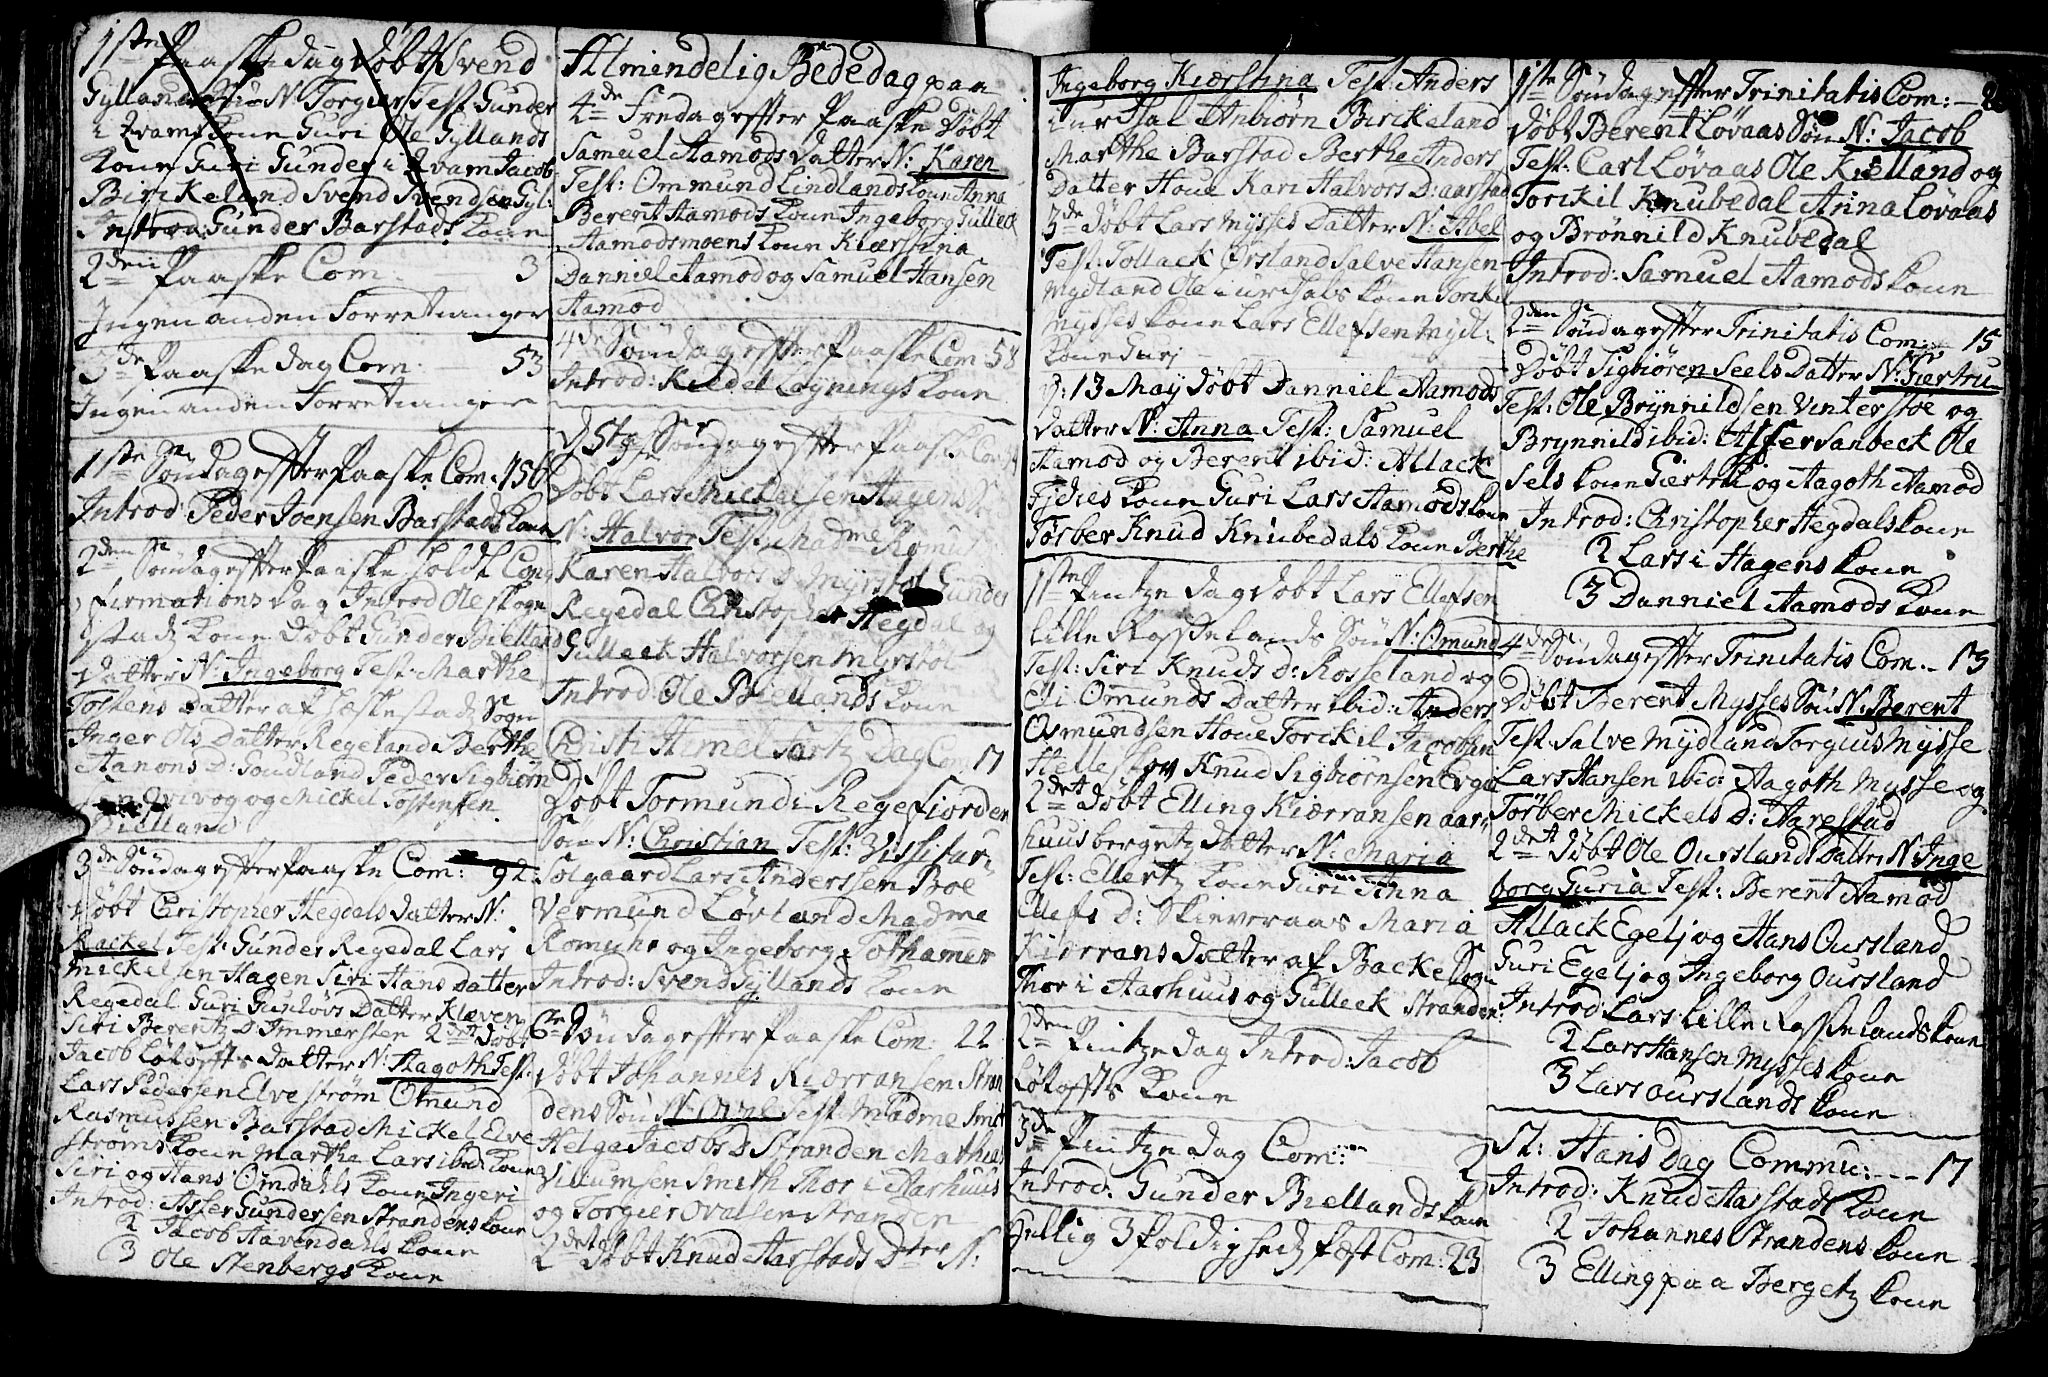 1ste Paaske dag døbt Svend
Gyllands Søn N: Torgius Test: Gunder
i Qvams Kone Guri Ole Gyllands
Kone Guri Gunder i Qvam Jacob
Birikeland Svend Svendsen Gyl:
Introd: Gunder Barstads Kone
2den Paaske Com: 3
Ingen anden Forretninger
3de Paaske dag Com: 53
Ingen anden Forretninger
1ste Sø: Søndag effter Paaske Com: 156
Introd: Peder Joensen Barstads Kone
2den Søndag effter Paaske holdt Con
firmations dag Introd Ole Skoge
stads Kone døbt Gunder Biellands
datter N: Ingeborg Test: Marthe
Tostens Datter af Hæskestads Sogn
Inger Ols Datter Regeland Berthe
Aanons D: Goudland Peder Sigbiørn
sen Qvivog og Michel Tostensen
Bielland
3de Søndag effter Paaske Com: 92
døbt Christopher Hegdals datter N:
Rackel Test: Gunder Regedal Lars
Mickelsen Hagen Siri Hans Datter
Regedal Guri Gunløvs Datter Kleven
Siri Berentz D Immersten 2det døbt
Jacob Løtoffts datter N: Aagoth Test:
Lars Pedersen Elvestrøm Omund
Rasmussen Barstad Mickel Elve
strøms Kone Marthe Lars ibid: Kone
Siri og Hans Omdahls Kone Ingeri
Introd: Asser Gundersen Strandens Kone
2 Jacob Aavendahls Kone
3 Ole Stenbergs Kone
Almindelig Bededag paa
4de Fredag effter Paaske Døbt
Samuel Aamods datter N: Karen
Test: Ommund Lindlands Kone Anna
Berent Aamods Kone Ingeborg Gulleck
Aamodsmoens Kone Kiærstina
Danniel Aamod og Samuel Hansen
Aamod
4de Søndag effter Paaske Com: 58
Introd: Kiedel Løynings Kone
D 5te Søndag effter Paaske Com:
Døbt Lars Mickelsen Hagens S
N: Halvor Test: Madme Romu
Karen Halvors D Myrstol Gunder
Regedal Christopher Hegdal og
Gulleck Halvorsen Myrstol
Introd: Ole Biellands Kone
Christi Hemelfartz Dag Com 17
Døbt Tormund i Regefiorden
Søn N: Christian Test:
Solgaard Lars Anderssen Boe
Vermund Løvland Madme
Romuhr og Ingeborg
Introd: Svend Gyllands Kone
6te Søndag effter Paaske Com: 22
døbt Johannes Kiærransen Stran
dens Søn N: Ovale Test: Madme Smit
Helga Jacobs D Stranden Mathias
Villumsen Smith Thor i Aarhuus
og Torgier Ovalsen Stranden
2det døbt Knud Aarstads Dter N:
Ingeborg Kiærstina Test: Anders
i urdsal Anbiørn Birckeland
Marthe Barstad Berthe Anders
Datter Houe Kari Halvors D: aarstad
3de døbt Lars Mysses Datter N: Abel
Test: Tollack Ørsland Salve Hansen
Mydland Ole i urdsals Kone Torckil
Mysses Kone Lars Ellefsen Mydl:
Kone Guri
d: 13 May døbt Danniel Aamods
datter N: Anna Test: Samuel
Aamod og Berent ibid: Allack
Kone Guri Lars Aamods Kone
Torber Knud Knubedals Kone Berthe
1ste Pintze dag døbt Lars Ellefsen
Lille Rosselands Søn N: Omund
Test: Siri Knuds d: Rosseland og
Eli Omunds Datter ibid: Anders
Osmundsen Houe Torckil Jacobsen
Knud Sigbiørnsen Evge
2det døbt Elling Kiærransen aar
huusbergetz datter N: Maria
Test: Ellertz Kone Guri Anna
Elefs D: Skieveraas Maria
Kiærrans Datter af Backe Sogn
Thor i Aarhuus og Gulleck Stranden
2den Pintze dag Introd: Jacob
Løtoffts Kone
3de Pintze dag Com: 2
Introd: Gunder Biellands Kone
Hellig 3foldigheds fæst Com: 23
1ste Søndag effter Trinitatis Com:
døbt Berent Løvaas Søn N: Jacob
Test: Carl Løvaas Ole Kielland og
Torckil Knubedal Anna Løvaas
og Brønnild Knubedal
Introd: Samuel Aamods Kone
2den Søndag effter Trinitatis Com: 15
Døbt Sigbiøren Seels Datter N: Giertru
Test: Ole Brynnildsen Vinterstøe og
Brynnild ibid: Asser Sanbeck Ole
Sels Kone Giertru og Aagoth Aamod
Introd: Christopher Hegdals Kone
2 Lars i Hagens Kone
3 Danniel Aamods Kone
4de Søndag effter Trinitatis Com: 13
Døbt Berent Mysses Søn N: Berent
Test: Salve Mydland Torgius Mysse
Lars Hansen ibid: Aagoth Mysse og
Torber Mickels D: Aarestad
2det døbt Ole Ourslands Datter N: Inge
borg Guria Test: Berent Aamod
Allack Egelj og Hans Oursland
Guri Egelj og Ingeborg Oursland
Introd: Lars Lille Rosselands Kone
2 Lars Hansen Mysses Kone
3 Lars Ourslands Kone
St: Hans Dag Commu: 17
Introd: Knud Aarstads Kone
2 Johannes Strandens Kone
3 Elling paa Bergetz Kone